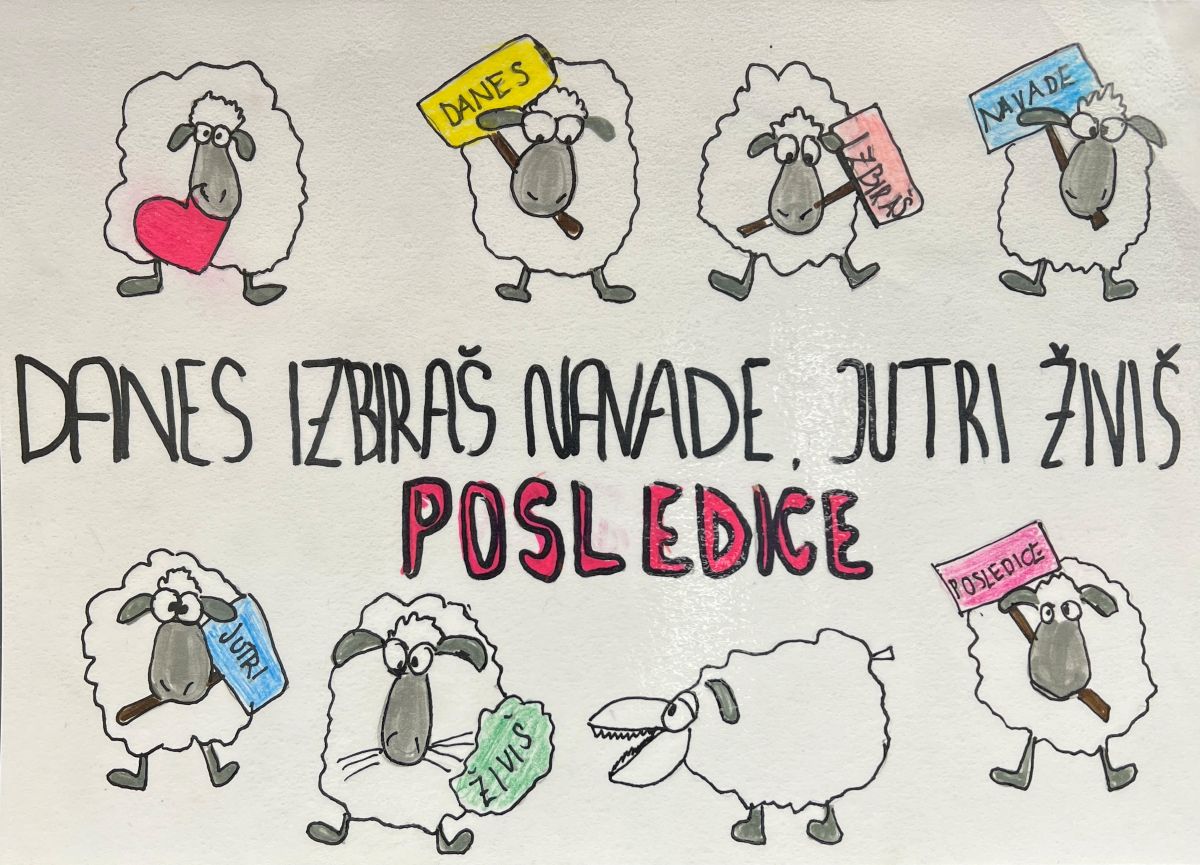 DANES
IZBIRAŠ
NAVADE
DANES IZBIRAŠ NAVADE, JUTRI ŽIVIŠ
POSLEDICE
JUTRI
ŽIVIŠ
POSLEDICE